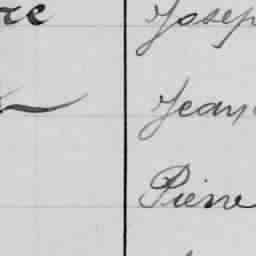 re Josep
Jean
Pierre